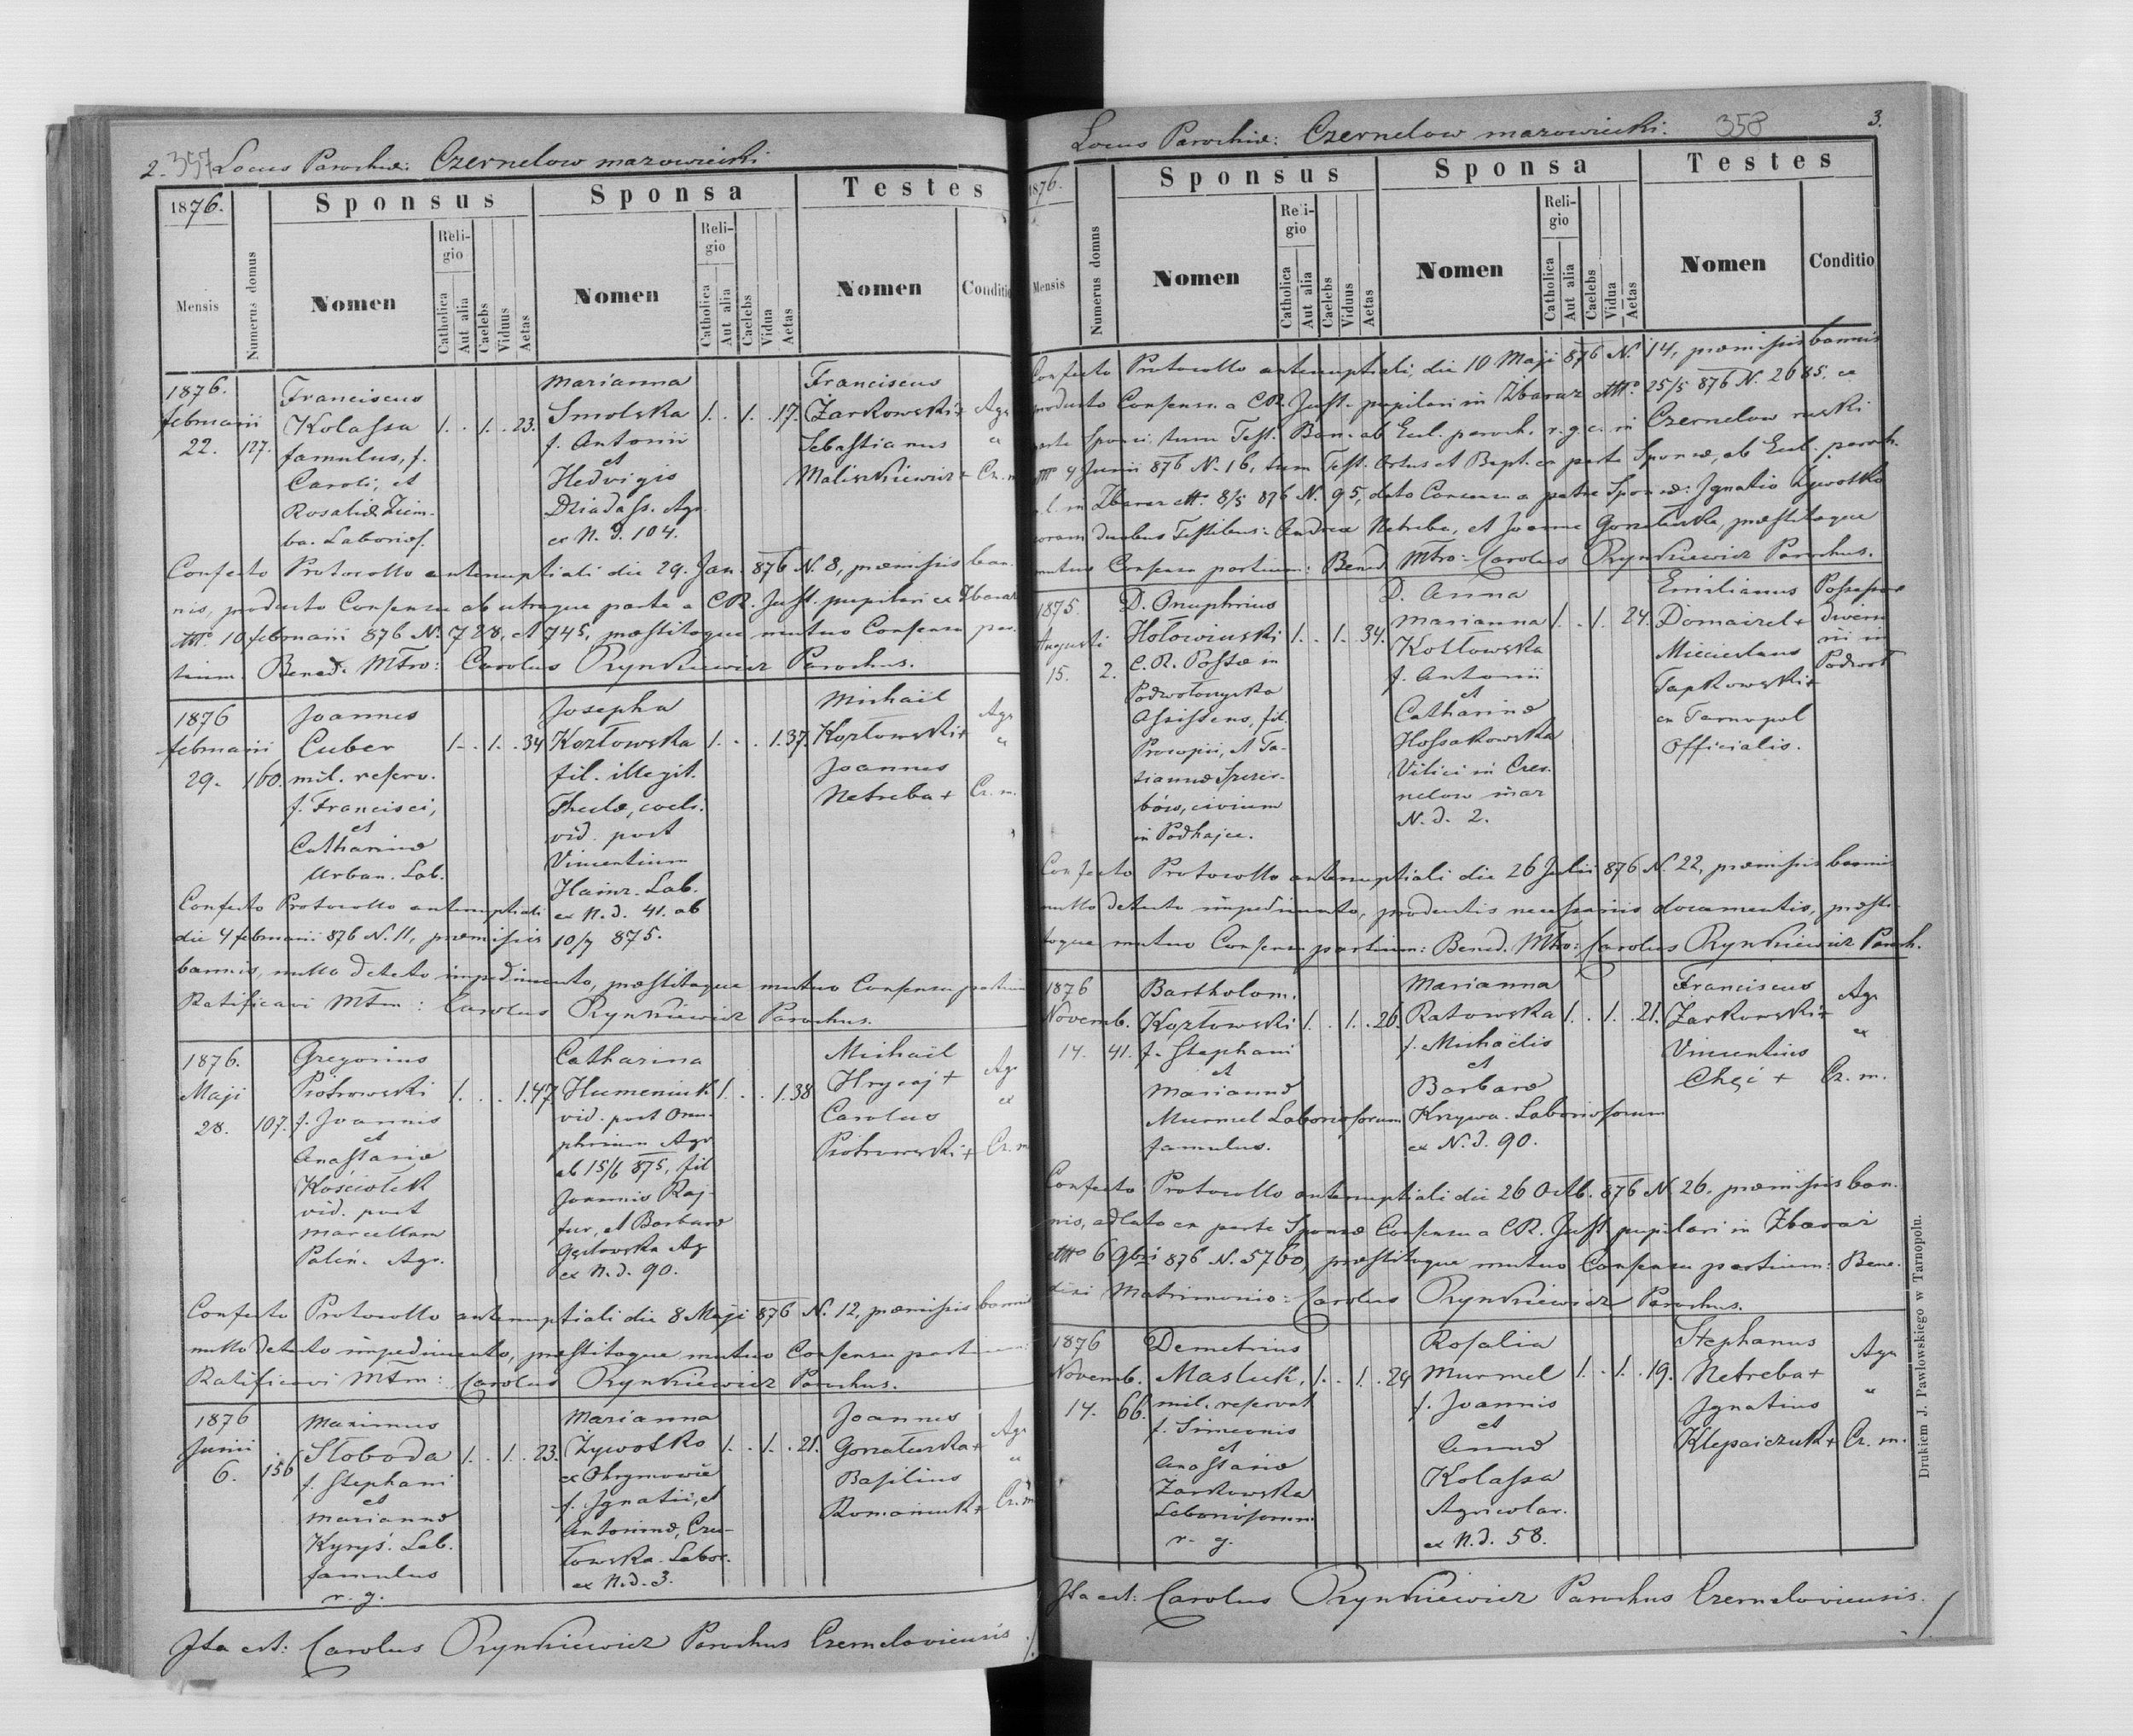 2. 357 Locus Parochiæ: Czernelow mazowiecki.
1876.
Sponsus
Sponsa
Testes
Mensis
Numerus domus
Nomen
Religio
Catholica
Aut alia
Caelebs
Viduus
Aetas
Nomen
Religio
Catholica
Aut alia
Caelebs
Vidua
Aetas
Nomen
Conditio
1876.
februarii
22.
127.
Franciscus
Kolassa
famulus, f.
Caroli, et
Rosaliæ Ziem-
ba. Laborios.
1. . 1. . 23.
Marianna
Smolska
f. Antonii
et
Hedvigis
Dziadass. Agr.
ex N. d. 104.
1. . 1. . 17.
Franciscus
Żarkowski+
Sebastianus
Maliszkiewicz +
Agr
"
Cz. m
Confecto Protocollo antenuptiali die 29. Jan. 876 N. 8, præmissis ban-
nis, producto Consensu ab utraque parte a CR. Just. pupilari ex Zbaraz
dtto 10 februarii 876 N. 728, et 745, præstitoque mutuo Consensu par-
tium. Bened. Mtro: Carolus Rynkiewicz Parochus.
1876
februarii
29.
160.
Joannes
Cuber
mil. reserv.
f. Francisci,
et
Catharinæ
Urban. Lab.
1. . 1. . 34
Josepha
Kozłowska
fil. illegit.
Theclæ, coel.
vid. post
Vincentium
Hainz. Lab.
ex N. d. 41. ab
10/7 875.
1. . . 1. 37.
Michaël
Kozłowski+
Joannes
Netreba +
Agr
"
Cz. m.
Confecto Protocollo antenuptiali
die 4 februarii 876 N. 11, præmissis
bannis, nullo detecto impedimento, præstitoque mutuo Consensu partium
Ratificavi Mtm: Carolus Rynkiewicz Parochus.
1876.
Maji
28.
107.
Gregorius
Piotrowski
f. Joannis
et
Anastasiæ
Kościołek
vid. post
Marcellam
Paliń. Agr.
1. . . 1. 47
Catharina
Humeniuk
vid. post Onu-
phrium Agr
ab 15/6 875, fil
Joannis Raj-
fur, et Barbaræ
ex N. d. 90.
1. . . 1. 38
Michaël
Hrycaj +
Carolus
Piotrowski +
Agr
ex
Cz. m
Confecto Protocollo antenuptiali die 8 Maji 876 N. 12, præmissis bannis
nullo detecto impedimento, præstitoque mutuo Consensu partium:
Ratificavi Mtm: Carolus Rynkiewicz Parochus.
1876
Junii
6.
156
Maximus
Słoboda
f. Stephani
et
Mariannæ
Kyryś. Lab.
famulus
r. g.
1. . 1. . 23.
Marianna
Żywotko
ex Ohrymowce
f. Ignatii, et
Antoninæ, Czu-
łowska. Labor.
ex N. d. 3.
1. . 1. . 21.
Joannes
Gonzaturska+
Basilius
Romaniuk+
Agr
"
Cz. m
Ita est: Carolus Rynkiewicz Parochus Czerneloviensis
Locus Parochiæ: Czernelow mazowiecki. 358 3.
1876.
Sponsus
Sponsa
Testes
Mensis
Numerus domus
Nomen
Religio
Catholica
Aut alia
Caelebs
Viduus
Aetas
Nomen
Religio
Catholica
Aut alia
Caelebs
Vidua
Aetas
Nomen
Conditio
Confecto Protocollo antenuptiali, die 10 Maji 876 N. 14, præmissis bannis
producto Consensu a CR. Just. pupilari in Zbaraz dtto 25/5 876 N. 2685. ex
parte Sponsi, tum Test. Ban. ab Eccl. paroch. r. g. c. in Czernelow ruski
dtto 4 Junii 876 N. 16, tum Test. Ortus et Bapt. ex parte Sponsæ, ab Eccl. paroch.
r. l. in Zbaraz dtto 8/5 876 N. 95, dato Consensu a patre Sponsæ: Ignatio Żywotko
coram duobus Testibus: Andrea Netreba, et Joanne Gonzaturska, præstitoque
mutuo Consensu partium: Bened Mtro: Carolus Rynkiewicz Parochus.
1875.
Augusti
15.
2.
D. Onuphrius
Hołowiński
C. R. Postæ in
Podwołoczyska
Assistens, fil.
Procopii, et Ta-
tiannæ Szczer-
bów, civium
in Podhajce.
1. . 1. . 34.
D. Anna
Marianna
Kotłowska
f. Antonii
et
Catharinæ
Hossakowska
Vilici in Czer-
nelow maz
N. d. 2.
1. . 1. 24.
Emilianus
Domairel+
Miecislaus
Tapkowski+
ex Tarnopol
Officialis.
Possessor
in
Podwoł
Confecto Protocollo antenuptiali die 26 Julii 876 N. 22, præmissis bannis
nullo detecto impedimento, productis necessariis documentis, præsti-
toque mutuo Consensu partium: Bened. Mtro: Carolus Rynkiewicz Paroch.
1876
Novemb.
14.
41.
Bartholom.
Kozłowski
f. Stephani
et
Mariannæ
Murmel Laboriosorum
famulus.
1. . 1. . 26.
Marianna
Ratowska
f. Michaëlis
et
Barbaræ
Krzywa. Laboriosorum
ex N. d. 90.
1. . 1. . 21.
Franciscus
Żarkowski+
Vincentius
Chęć +
Agr
ex
Cz. m.
Confecto Protocollo antenuptiali die 26 Octb. 876 N. 26. præmissis ban-
nis, adlato ex parte Sponsæ Consensu a CR. Just pupilari in Zbaraż
dtto 6 9bris 876 N. 5760, præstitoque mutuo Consensu partium: Bene-
dixi Matrimonio: Carolus Rynkiewicz Parochus.
1876
Novemb.
14.
66.
Demetrius
Masluk,
mil. reservat
f. Simeonis
et
Anastasiæ
Żarkowska
Laboriosorum
r. g.
1. . 1. . 24
Rosalia
Murmel
f. Joannis
et
Annæ
Kolassa
Agricolar.
ex N. d. 58.
1. . 1. . 19.
Stephanus
Netreba+
Ignatius
Klepaiczuk+
Agr
"
Cz. m.
Ita est: Carolus Rynkiewicz Parochus Czerneloviensis.
Drukiem J. Pawłowskiego w Tarnopolu.